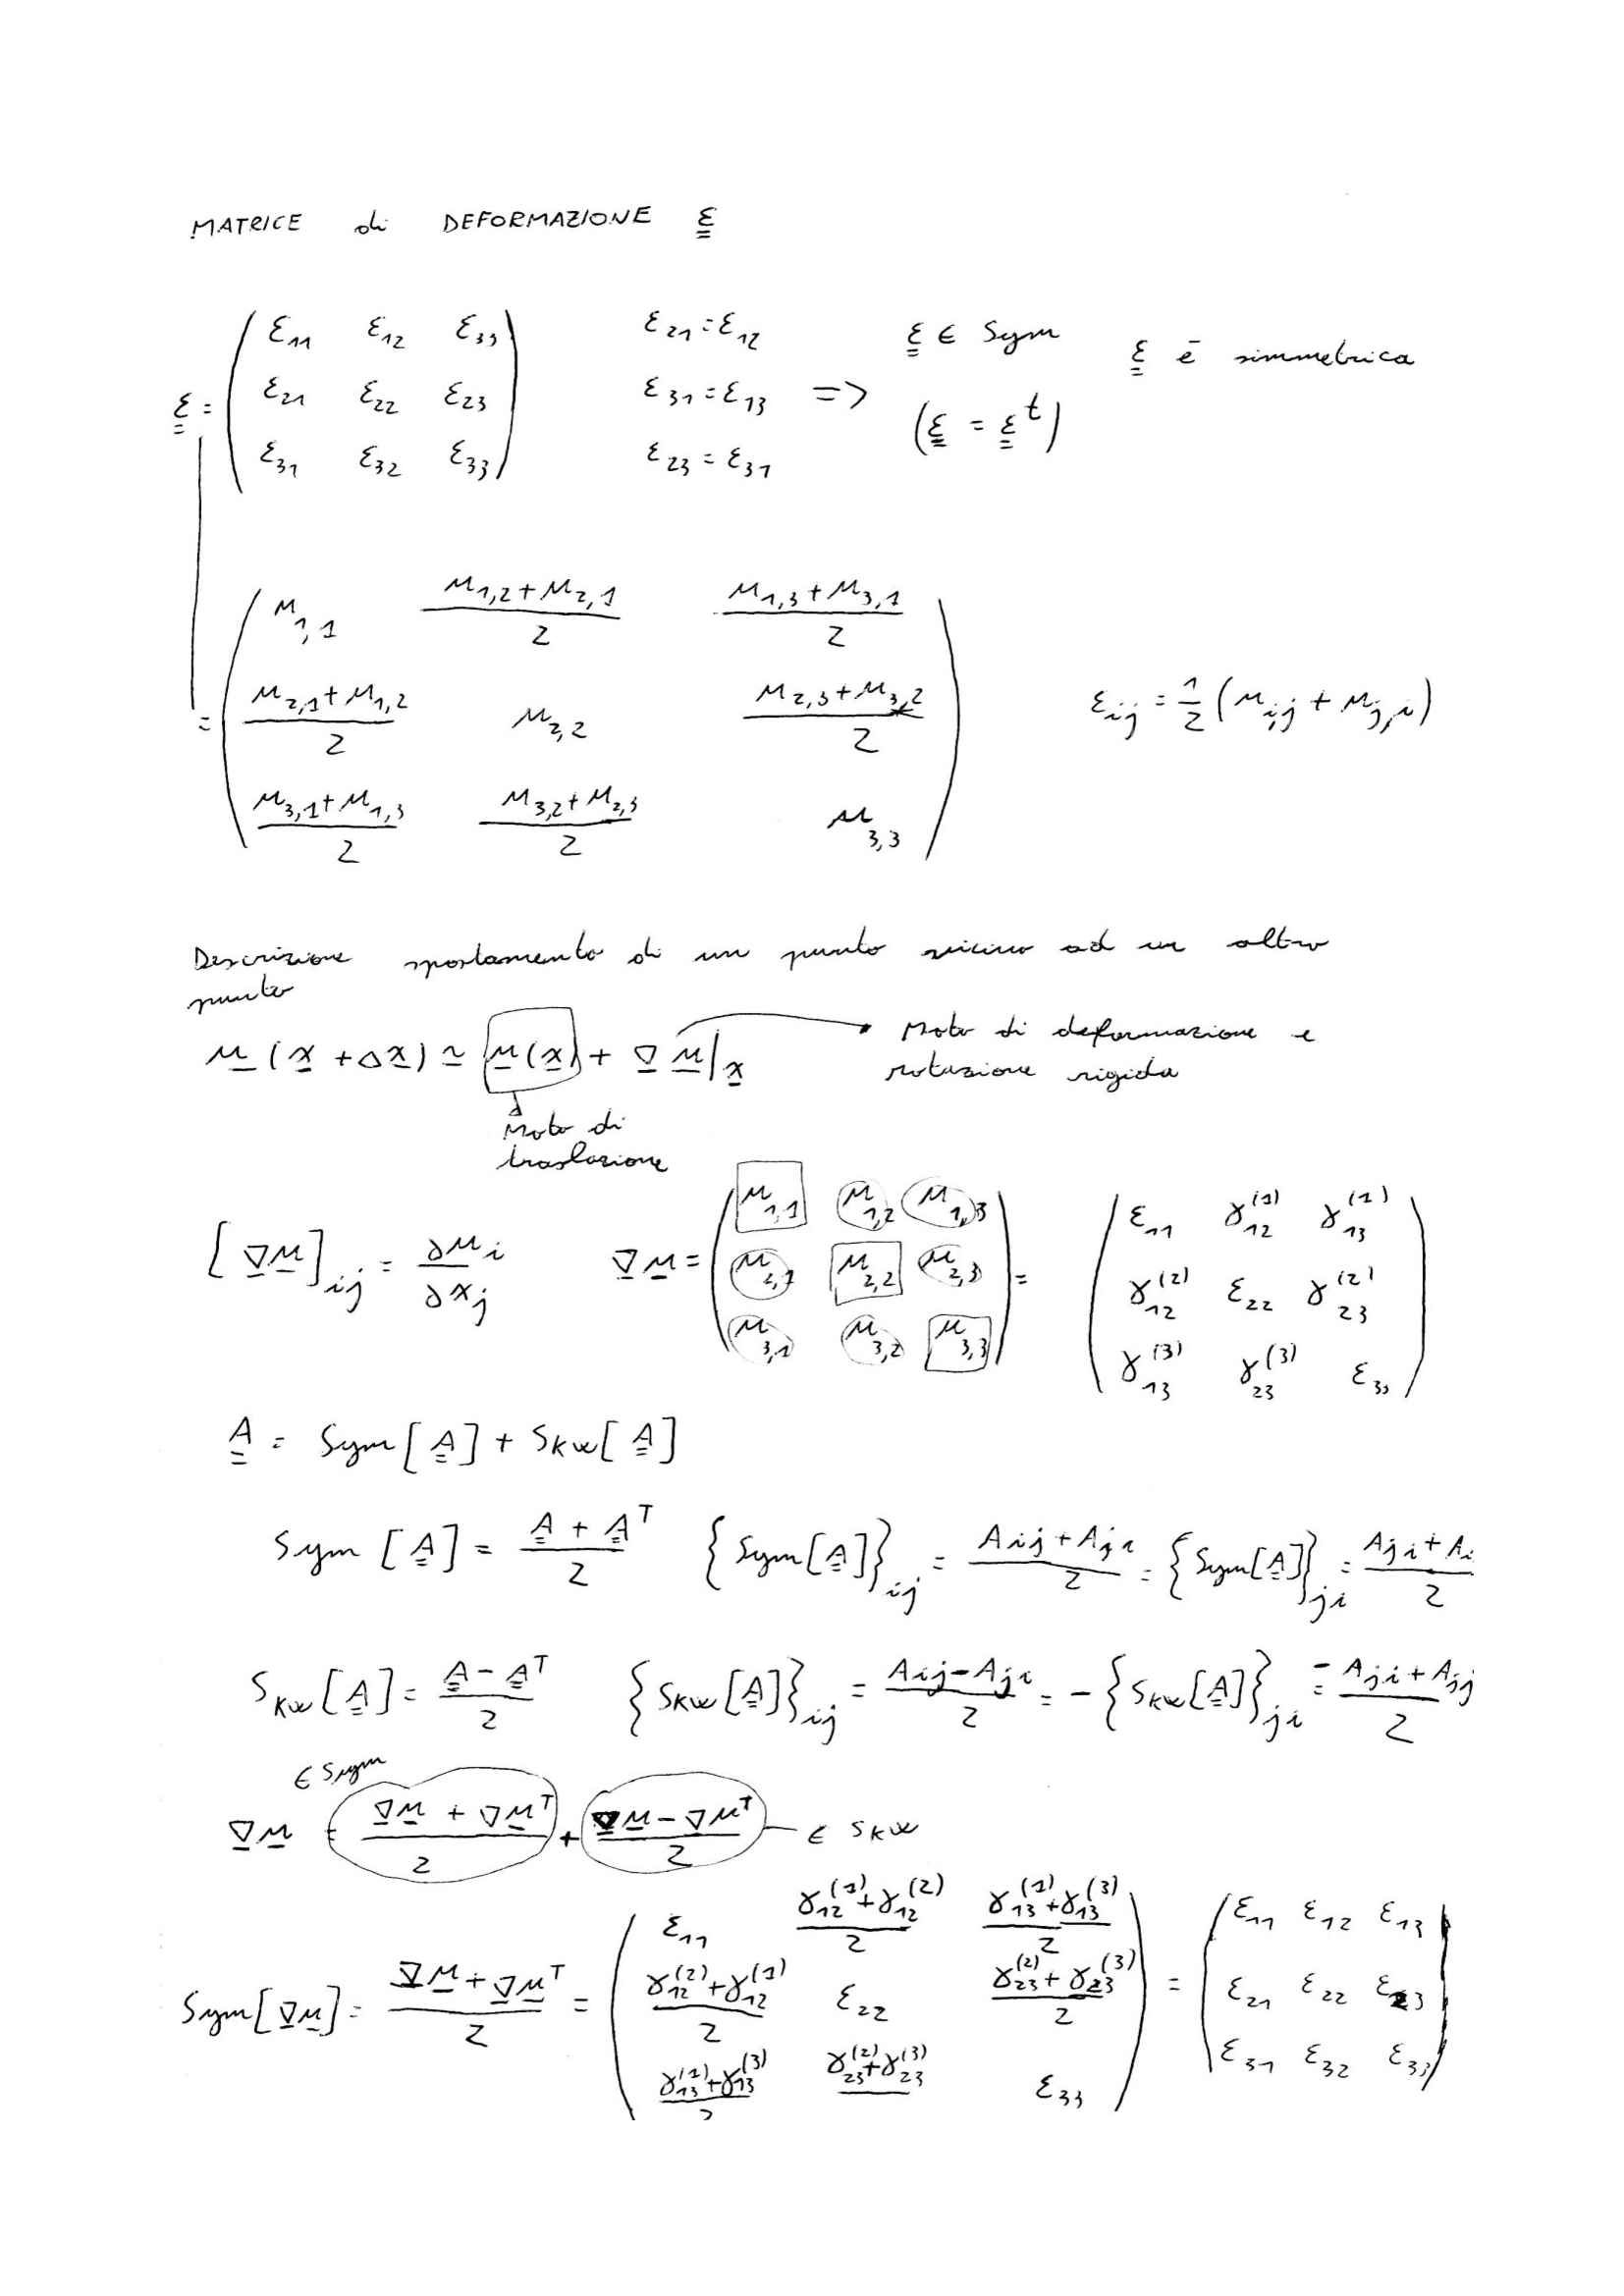 MATRICE di DEFORMAZIONE ε
ε = ( ε11 ε12 ε33 ; ε21 ε22 ε23 ; ε31 ε32 ε33 )
ε21 = ε12
ε31 = ε13
ε23 = ε31
=> ε ∈ Sym
(ε = ε^t)
ε è simmetrica
= ( u1,1 (u1,2+u2,1)/2 (u1,3+u3,1)/2 ; (u2,1+u1,2)/2 u2,2 (u2,3+u3,2)/2 ; (u3,1+u1,3)/2 (u3,2+u2,3)/2 u3,3 )
εij = 1/2 (ui,j + uj,i)
Descrizione spostamento di un punto vicino ad un altro
punto
u(x + Δx) ≃ u(x) + ∇u|x
Moto di deformazione e
rotazione rigida
Moto di
traslazione
[∇u]ij = ∂ui/∂xj
∇u = ( u1,1 u1,2 u1,3 ; u2,1 u2,2 u2,3 ; u3,1 u3,2 u3,3 ) = ( ε11 γ12^(1) γ13^(1) ; γ12^(2) ε22 γ23^(2) ; γ13^(3) γ23^(3) ε33 )
A = Sym[A] + Skw[A]
Sym[A] = (A + A^T)/2 {Sym[A]}ij = (Aij + Aji)/2 = {Sym[A]}ji = (Aji + Ai)/2
Skw[A] = (A - A^T)/2 {Skw[A]}ij = (Aij - Aji)/2 = -{Skw[A]}ji = (-Aji + Ajj)/2
∈ Sym
∇u = (∇u + ∇u^T)/2 + (∇u - ∇u^T)/2 ∈ Skw
Sym[∇u] = (∇u + ∇u^T)/2 = ( ε11 (γ12^(1)+γ12^(2))/2 (γ13^(1)+γ13^(3))/2 ; (γ12^(2)+γ12^(1))/2 ε22 (γ23^(2)+γ23^(3))/2 ; (γ13^(1)+γ13^(3))/2 γ23^(2)+γ23^(3) ε33 ) = ( ε11 ε12 ε13 ; ε21 ε22 ε23 ; ε31 ε32 ε33 )